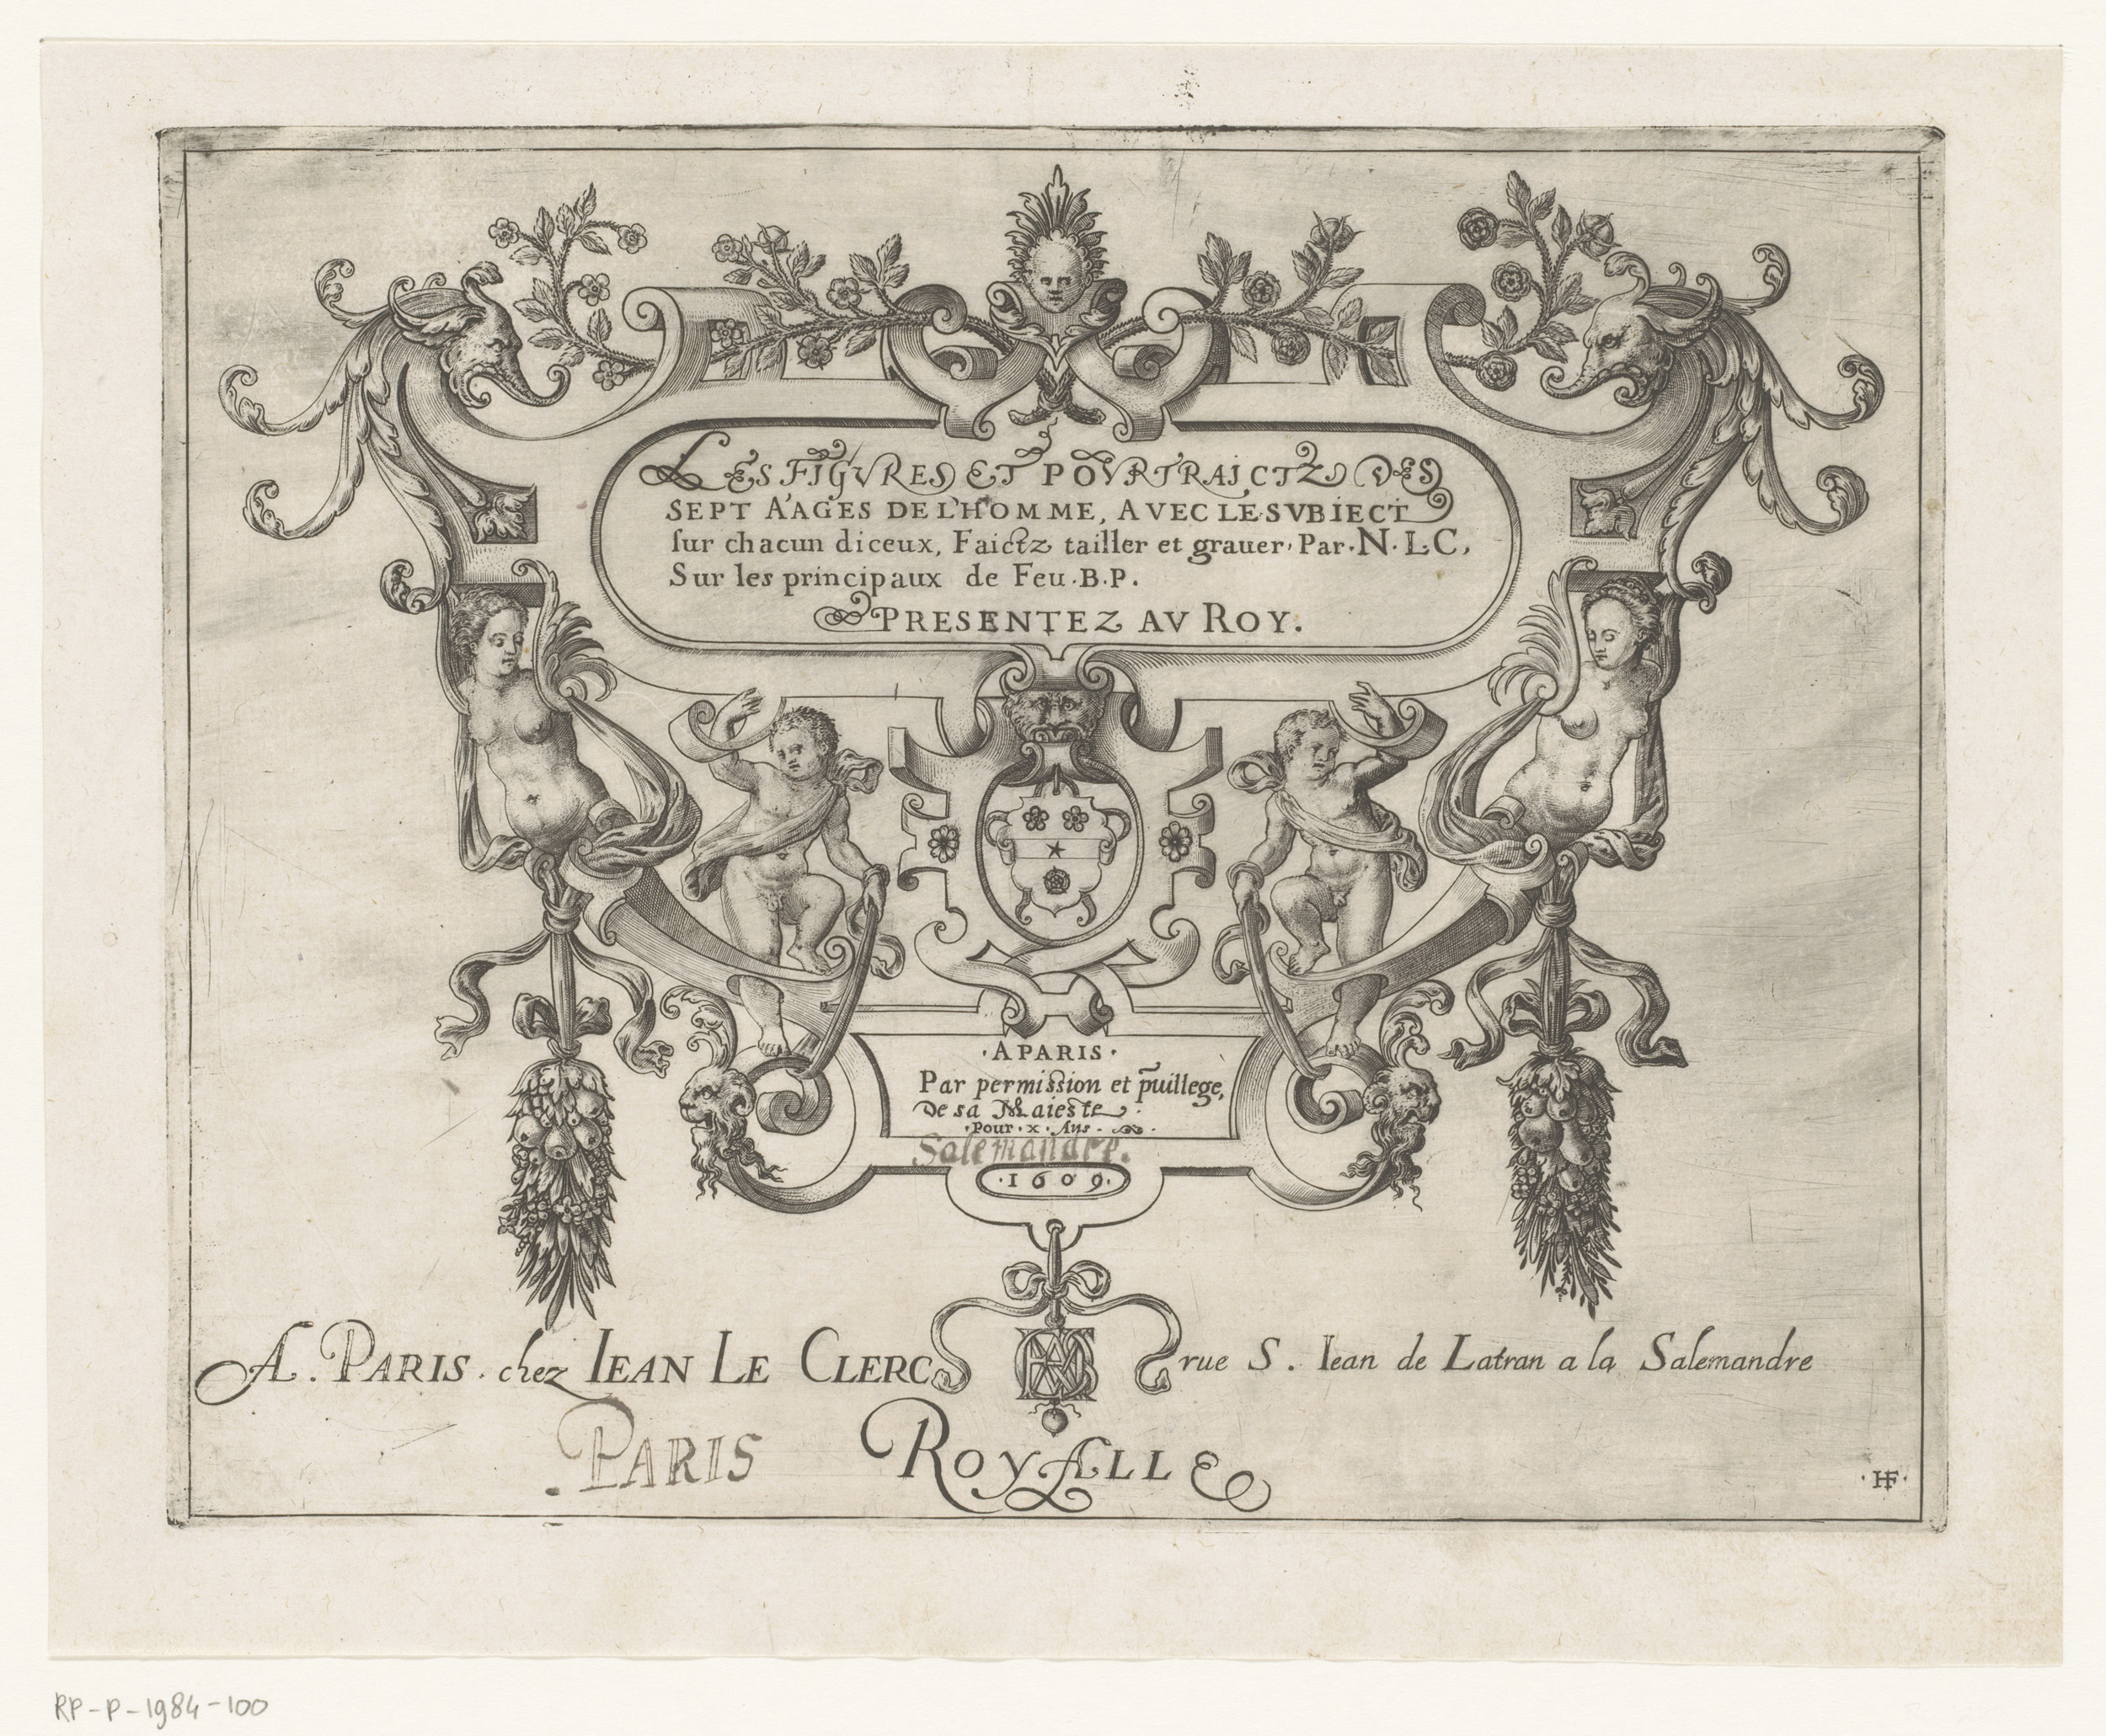 LES FIGVRES ET POVRTRAICTZ DES
SEPT AAGES DE L'HOMME, AVEC LE SVBIECT
sur chacun diceux, Faictz tailler et grauer, Par. N. L. C,
Sur les principaux de Feu. B. P.
PRESENTEZ AV ROY.
·A PARIS·
Par permission et p̄uillege,
De sa Maieste
·Pour·x·Ans·
Salemandre.
·1609·
A. PARIS. chez IEAN LE CLERC rue S. Iean de Latran a la Salemandre
.PARIS ROYALLE
·HF·
RP-P-1984-100